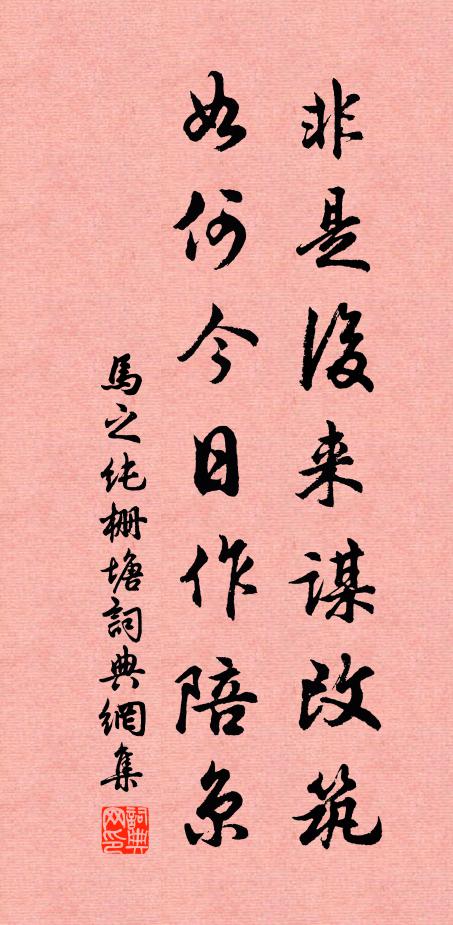 非是後来謀改筑
如何今日作陪京
馬之純柵塘詞典網集
詞典网印